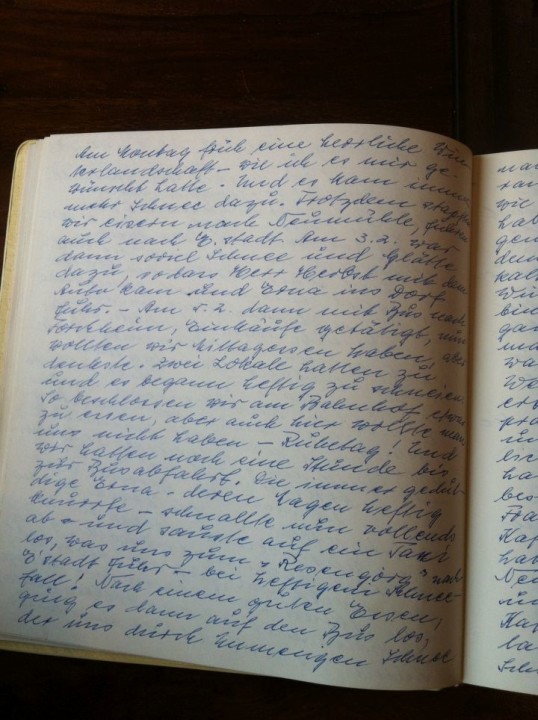 Am Montag früh eine herrliche Win-
terlandschaft – wie ich es mir ge-
wünscht hatte. Und es kam immer
mehr Schnee dazu. Trotzdem stapften
wir eisern nach Neumühle, fuhren
auch nach E.stadt. Am 3.2. war
dann soviel Schnee und Glätte
dazu, sodass Herr Herbst mit dem
Auto kam und Erna ins Dorf
fuhr. – Am 5.2. dann mit Bus nach
Forchheim, Einkäufe getätigt, nun
wollten wir Mittagessen haben, aber
denkste. Zwei Lokale hatten zu
und es begann heftig zu schneien.
So beschlossen wir am Bahnhof etwas
zu essen, aber auch hier wollte man
uns nicht haben – Ruhetag! Und
wir hatten noch eine Stunde bis
zur Busabfahrt. Die immer gedul-
dige Erna – deren Magen heftig
knurrte – schnallte nun vollends
ab – und sauste auf ein Taxi
los, was uns zum "Resengörg" nach
E'stadt fuhr – bei heftigem Schnee-
fall! Nach einem guten Essen,
ging es dann auf den Bus los,
der uns durch Unmengen Schnee